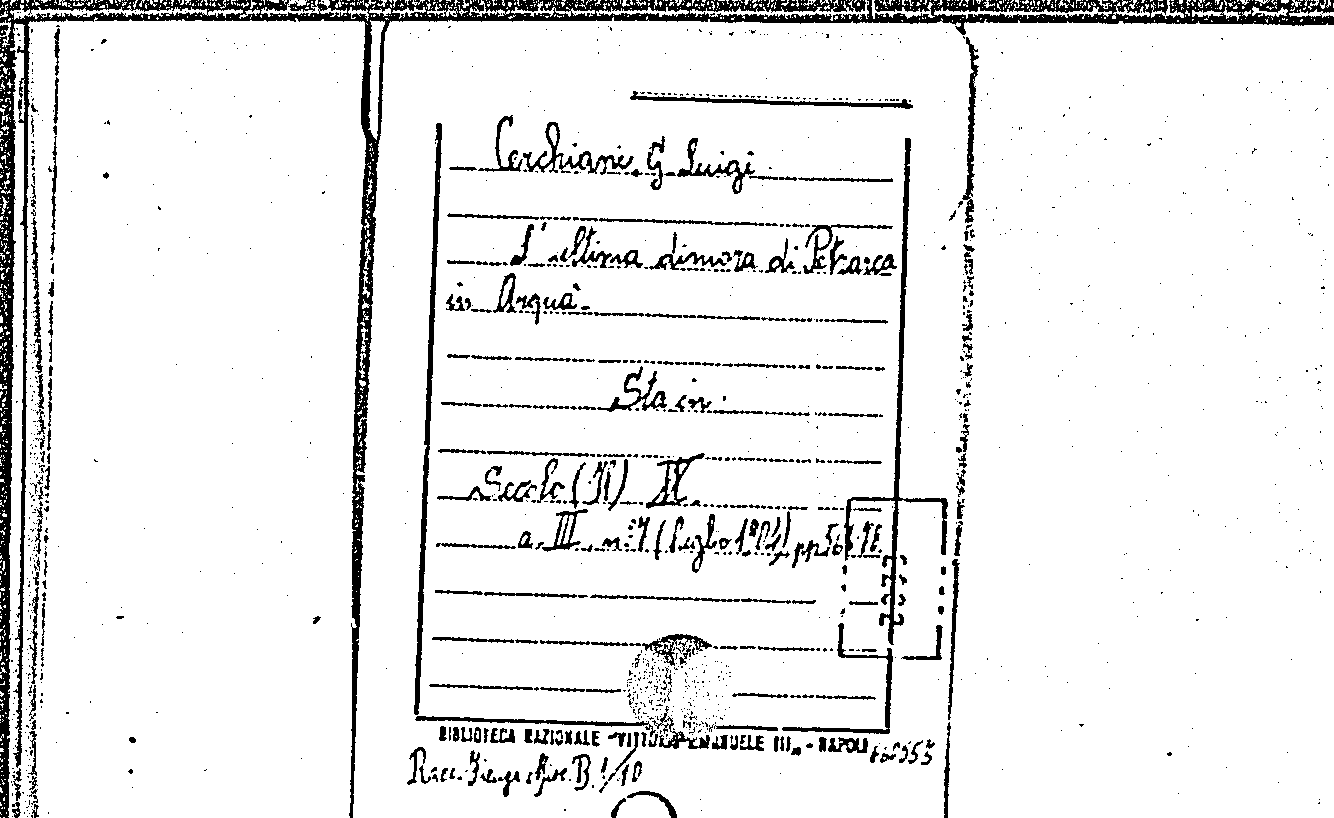 Cerchiari G. Luigi
L'ultima dimora di Petrarca
in Arquà.
Sta in:
Secolo (Il) XX.
a. III, n.º 7 (luglio 1904) pp.
BIBLIOTECA NAZIONALE "VITTORIO EMANUELE III„ - NAPOLI
Racc. Misc. B. 1/10